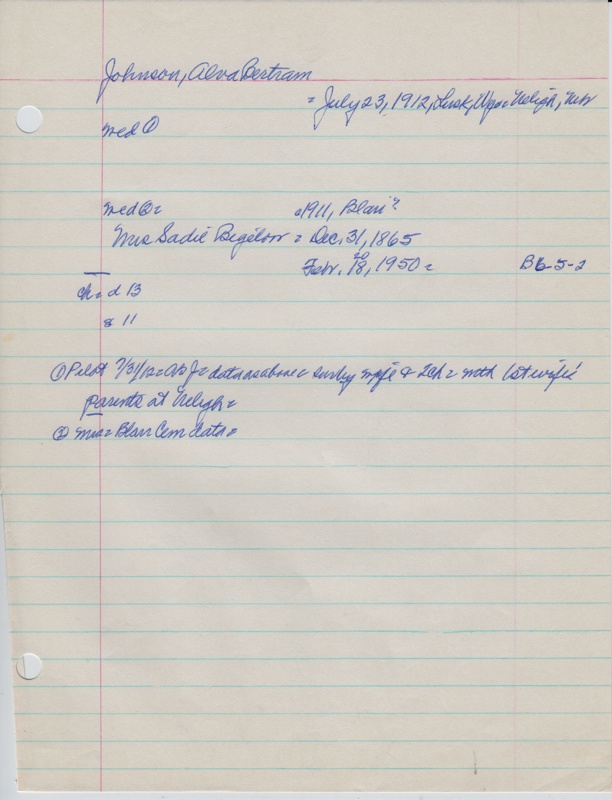 Johnson, Alva Bertram
= July 23, 1912, Lusk, Wyo= Neligh, Neb
med ①
med②= c1911, Blair?
Mrs Sadie Bigelow = Dec. 31, 1865
20
Febr. 18, 1950= B6-5-2
ch= d 13
s 11
① Pilot 7/31/12= AB J= data as above= surv by wife & 2ch= with 1st wife's
parents at Neligh=
② Mrs= Blair Cem data=